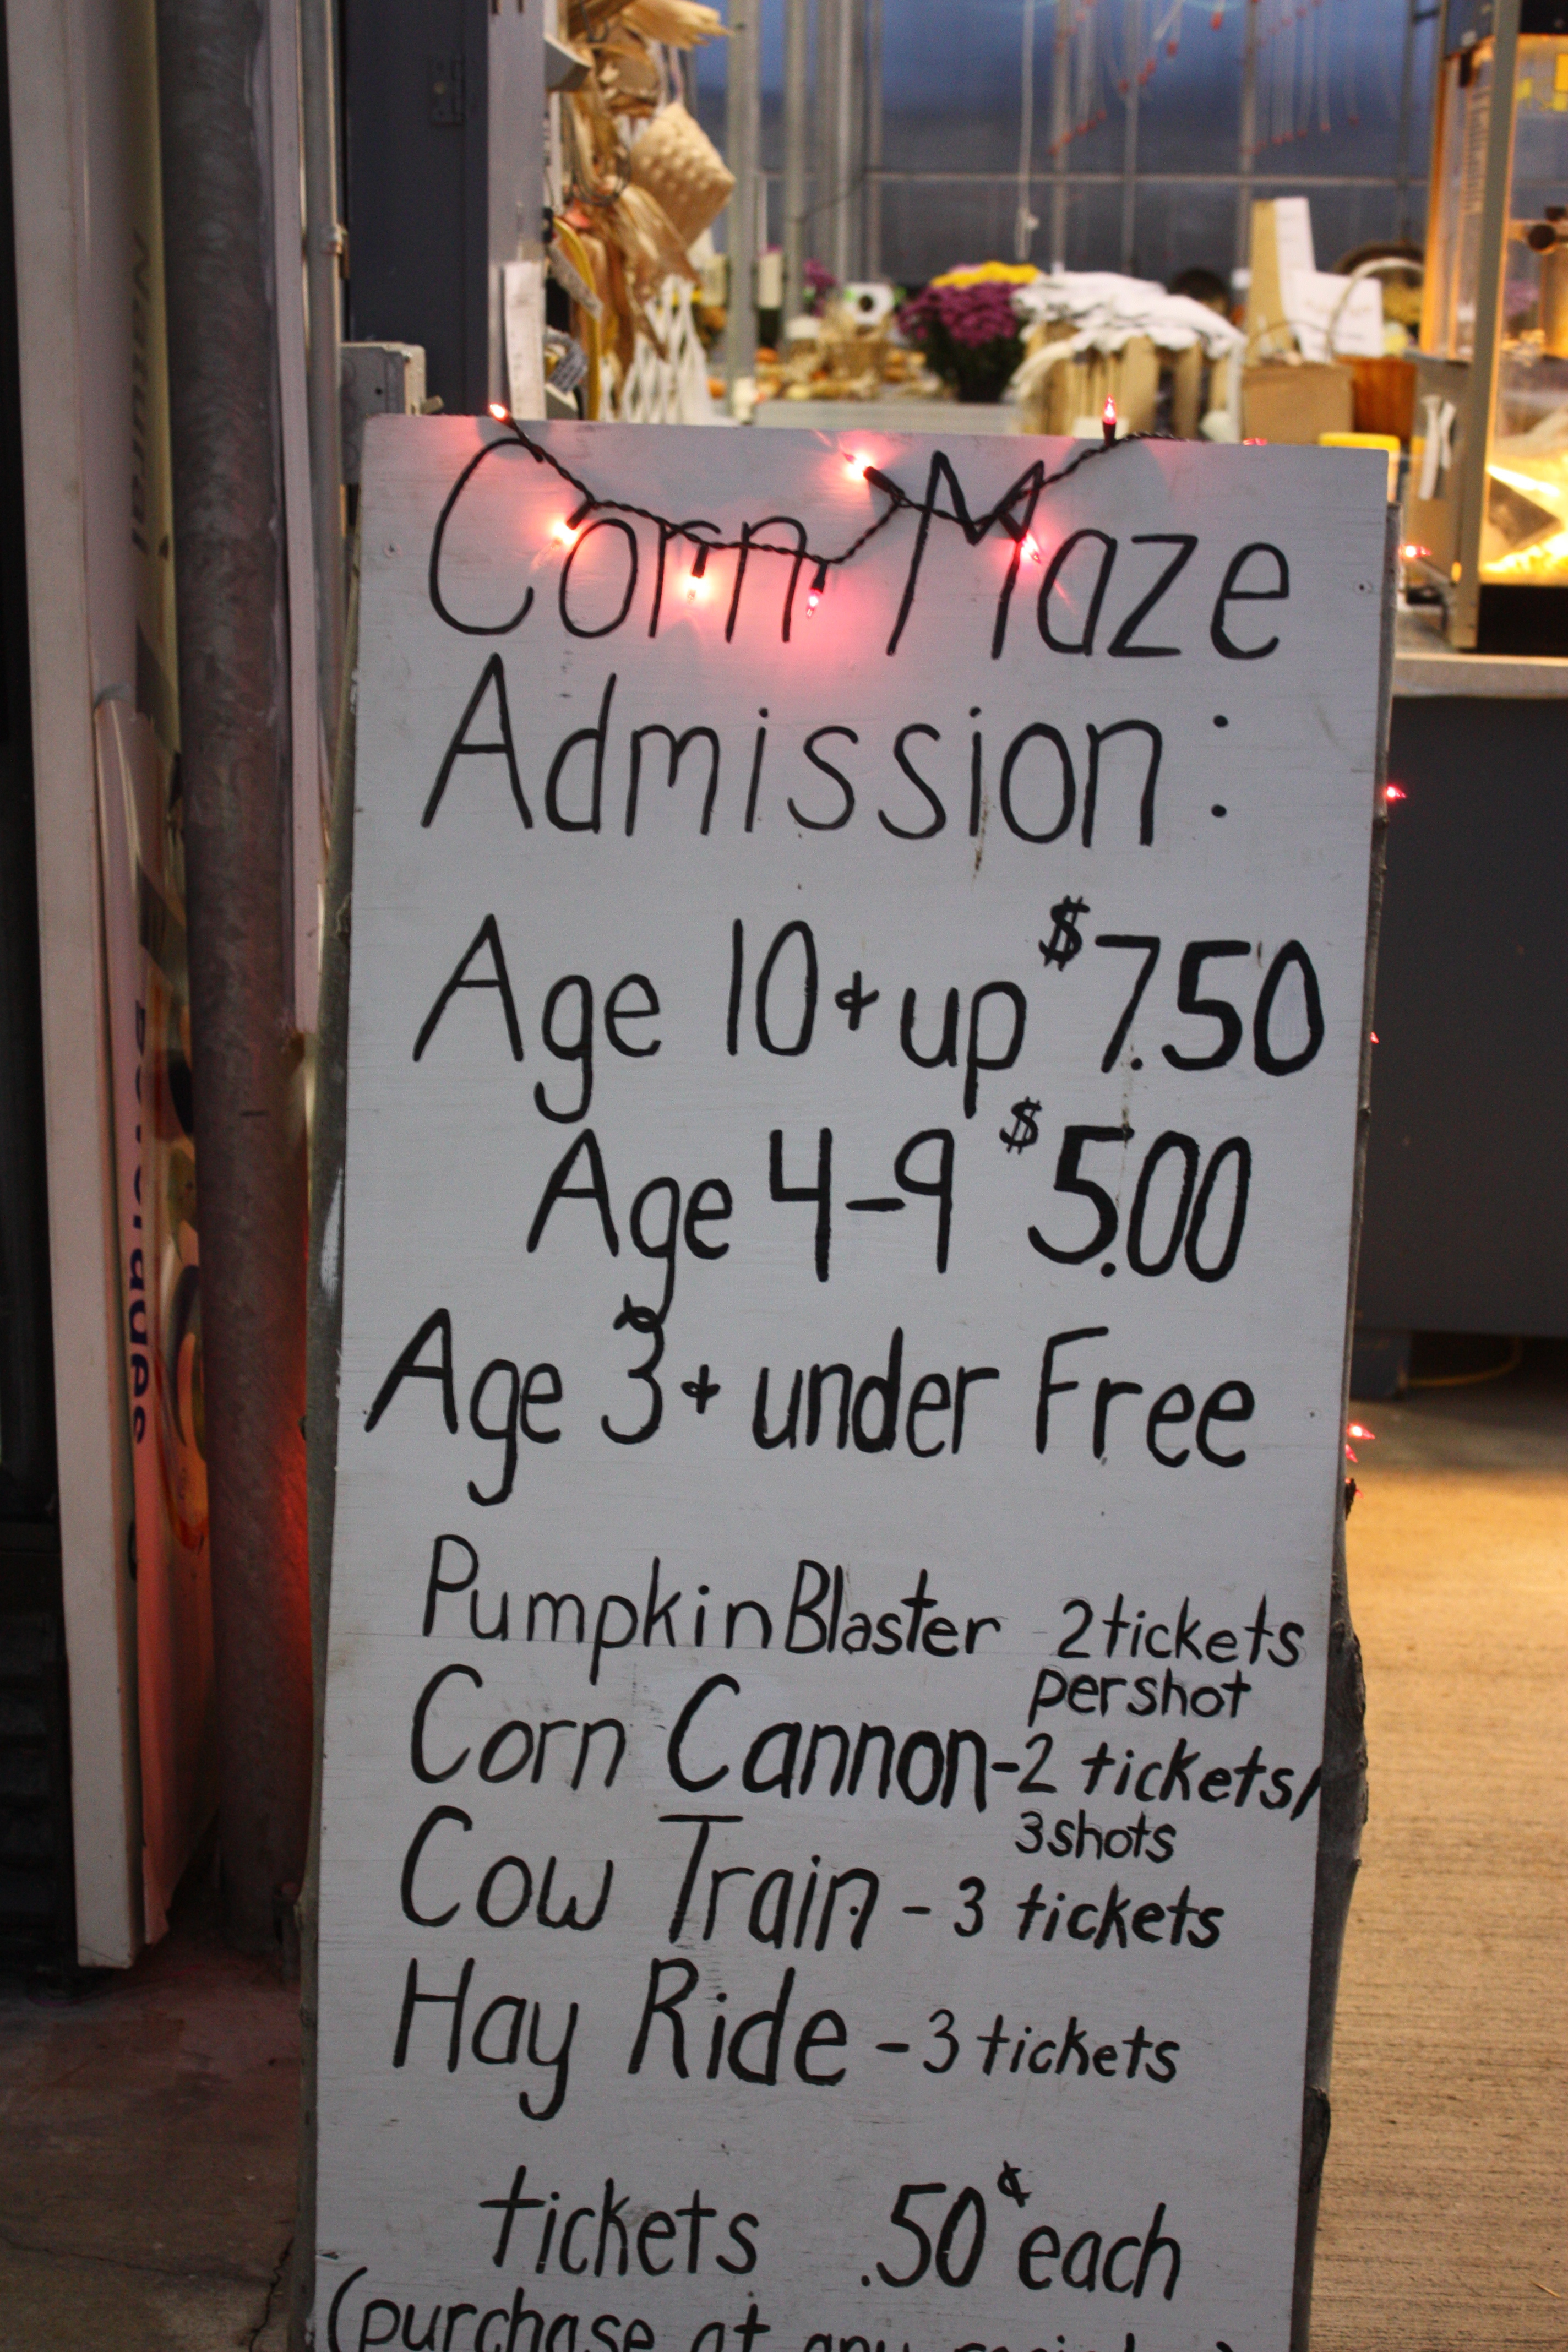 Corn Maze
Admission:
Age 10 + up $7.50
Age 4-9 $5.00
Age 3 + under Free
Pumpkin Blaster 2 tickets
per shot
Corn Cannon-2 tickets/
3 shots
Cow Train - 3 tickets
Hay Ride - 3 tickets
tickets .50¢ each
(purchase at any
Beverages